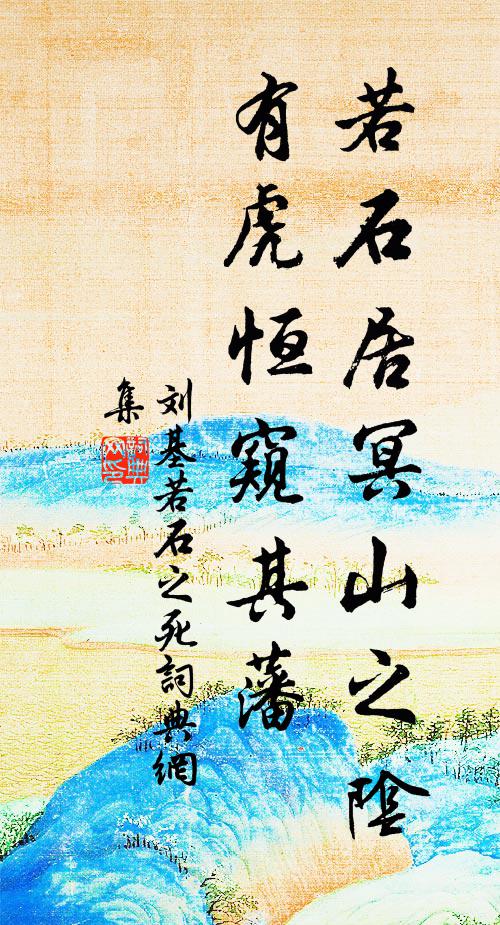 若石居冥山之陰
有虎恒窺其藩
刘基若石之死詞典網
集